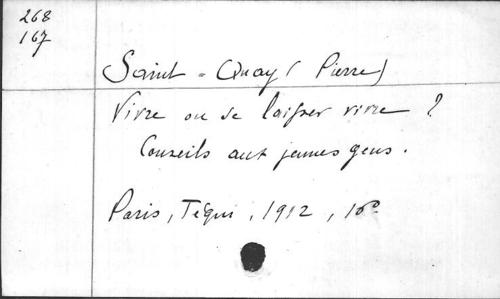 268
167
Saint-Quay (Pierre)
Vivre ou se laisser vivre ?
Conseils aux jeunes gens.
Paris, Téqui, 1912, 16º